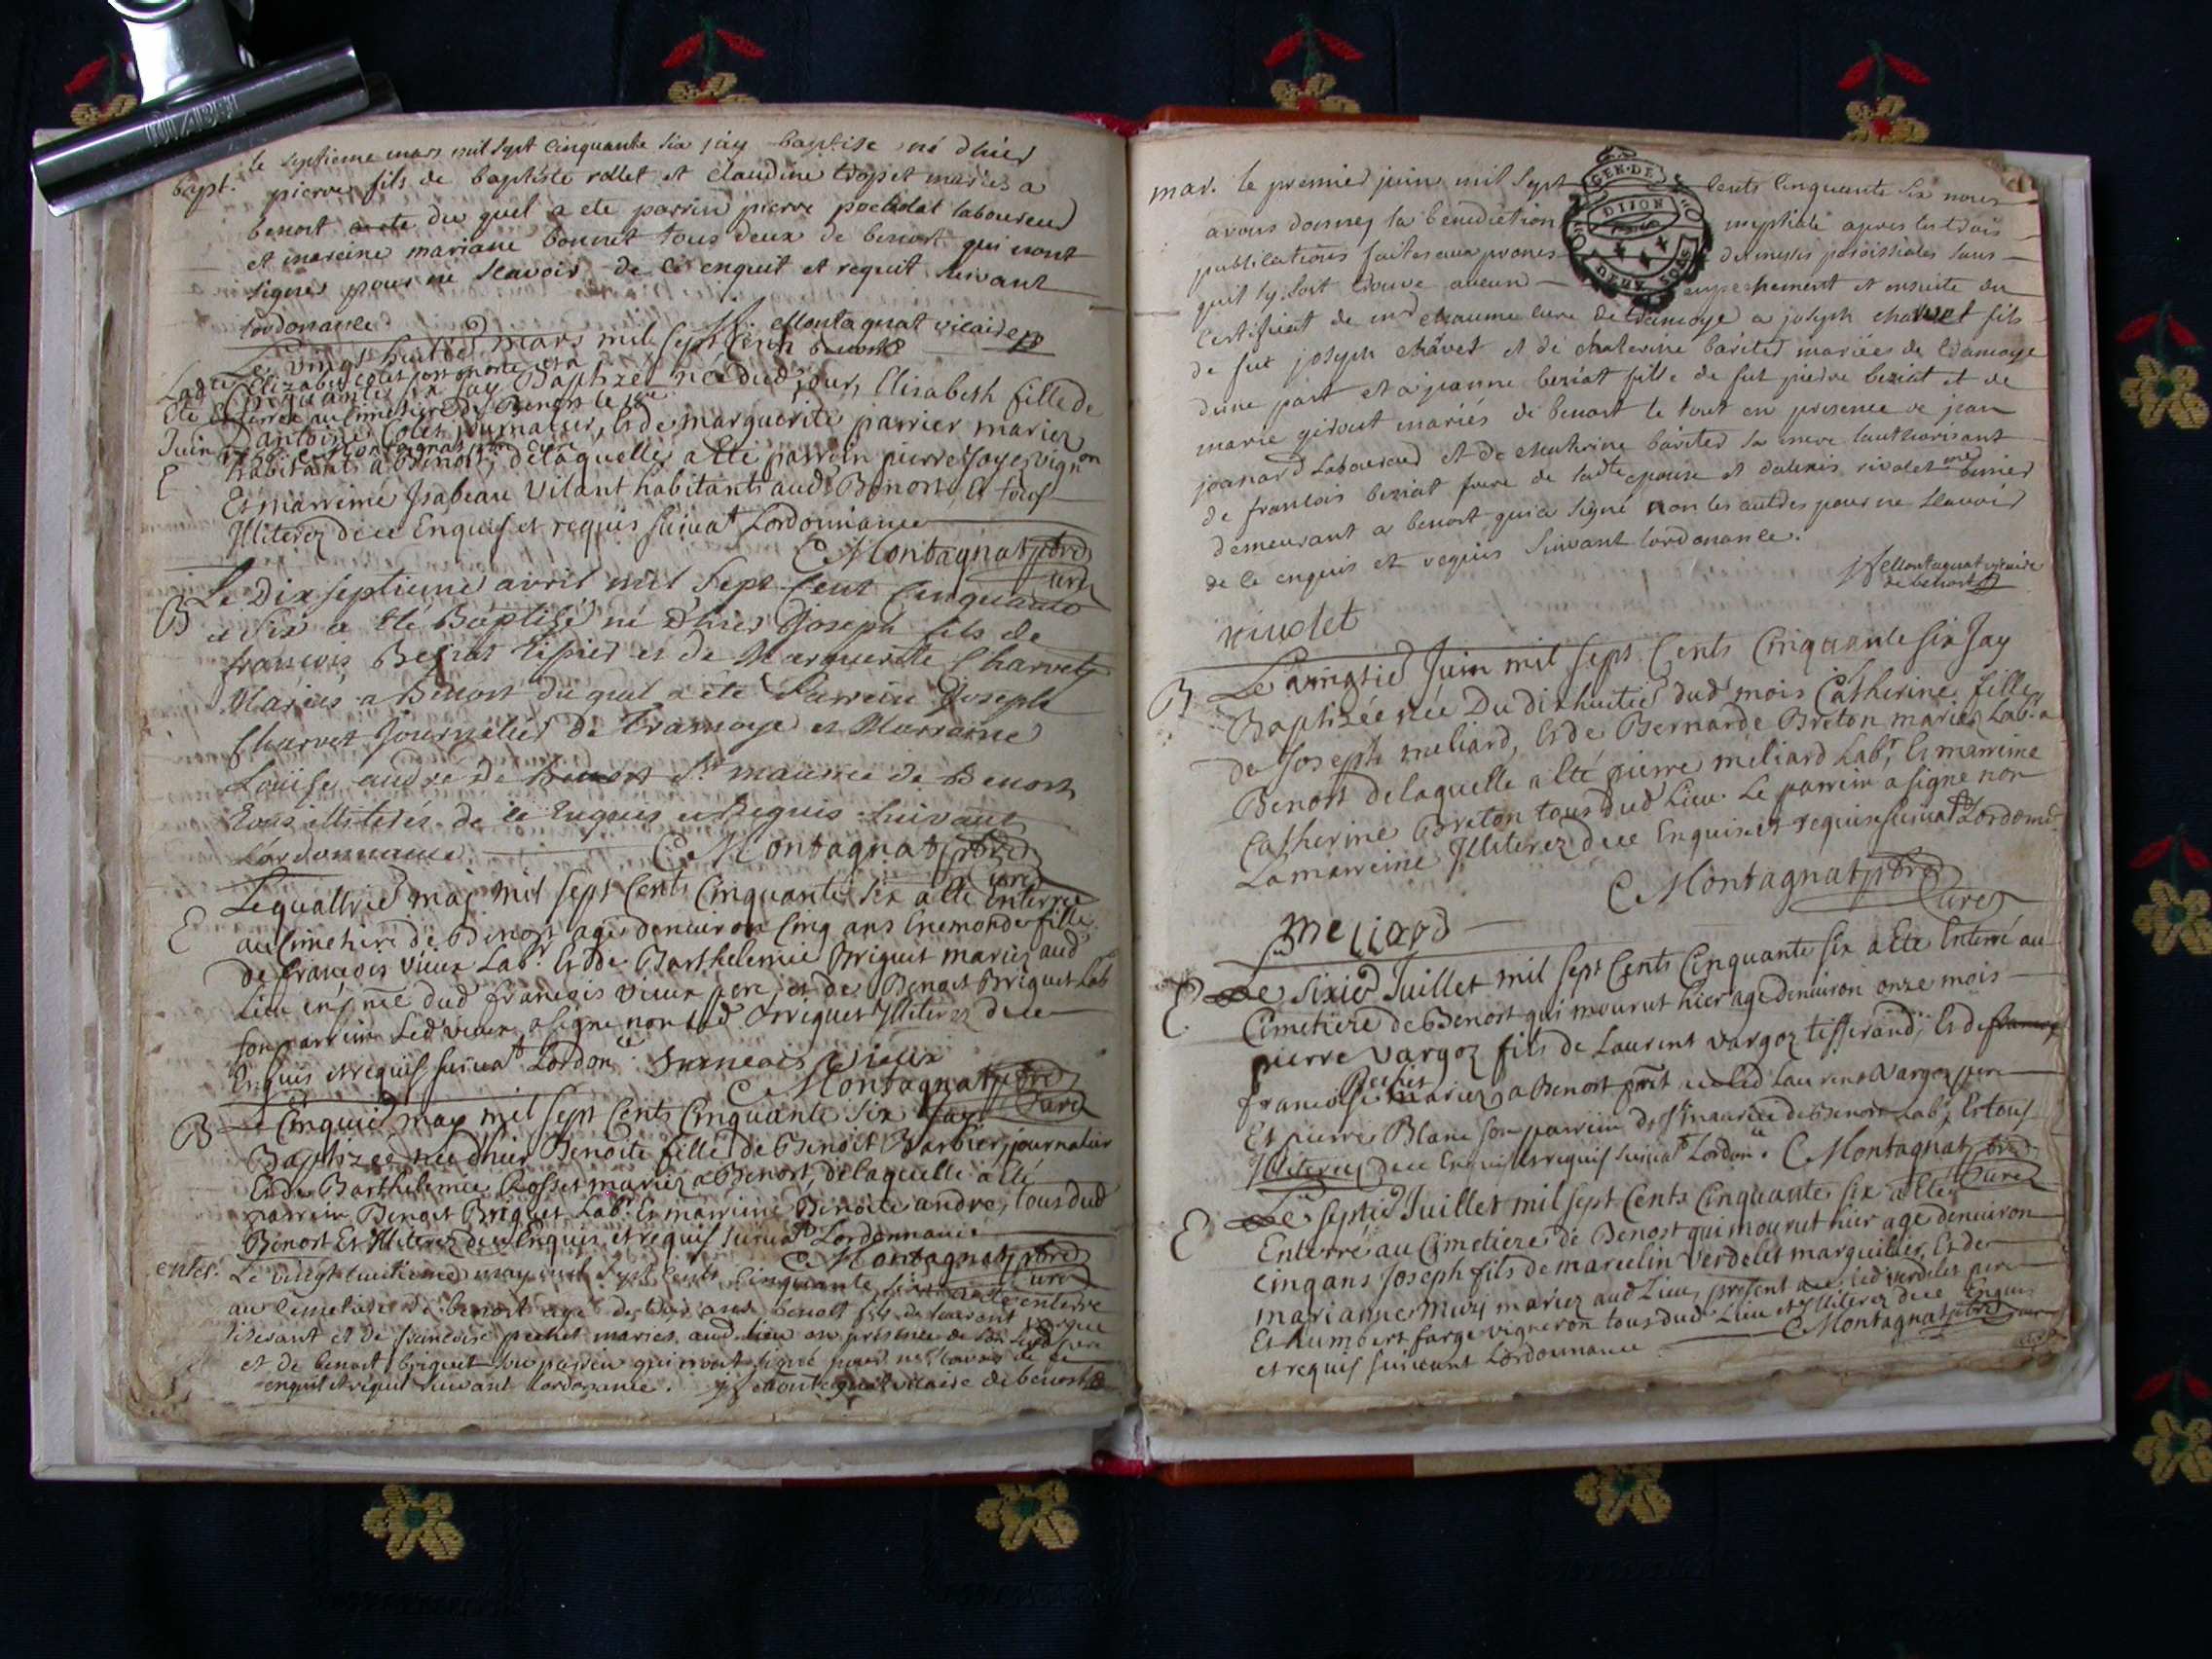 le septieme mars mil sept cinquante six jay baptise né dhier
bapt. pierre fils de baptiste rollet et claudine trapet mariés a
benost du quel a ete parrin pierre pocholat laboureur
et mareine mariane bouvret tous deux de benost qui nont
signes pour ne scavoir de ce enquit et requit suivant
lordonance. Montagnat vicaire
Le vingt huitie mars mil sept Cents
benost
Lad te Elizabet Colet
Cinquante six Jay Baptizée née dud jour, Elisabeth fille de
Eté Enterrée au Cimetiere de Benost le
antoine Colet journalier, Et de marguerite parrier mariez
Juin
habitants a Benost, de laquelle a Eté parrein pierre Joye vign on
E
Et marreine Isabeau Vilant habitants aud Benost, Et tous
Illiterez de ce Enquis et requis suivat Lordonnance
C Montagnat ptre
Curé
Le Dix septieme avril mil sept Cent Cinquante
B et six a Eté Baptisé né d'hier Joseph fils de
francois Beziat Tixier et de Marguerite Charvet
Mariés a Benost duquel a été Parrein Joseph
Charvet Journalier de Tramoye et Marraine
Louise andré de St maurice de Benost
tous illiterés de ce Enquis et Requis suivant
Lordonnance. C Montagnat ptre
Curé
Le quattrie may mil sept Cents Cinquante six a Eté Enterrée
E au Cimetiere de Benost agée denviron Cinq ans Enemonde fille
de francois vieux Lab r Et de Barthelemie Briguet mariez aud
Lieu en dud francois vieux pere, et de Benoit Briguet Lab
son parrein Led vieux a signé non led Briguet Illiterez de ce
Enquis et requis suivat Lordonce francois vieux
C Montagnat ptre
Curé
B Le Cinquie may mil sept Cents Cinquante six Jay
Baptizée née d'hier Benoite fille de Benoit Barbier journalier
Et de Barthelemie Rosset mariez a Benost, de laquelle a Eté
parrein Benoit Briguet Lab r Et marreine Benoite andre, tous dud
Benost Et Illiterez de ce Enquis et requis suivat Lordonnance
C Montagnat ptre
Curé
enter. Le vingt huitieme may mil sept cents cinquante six a ete enterre
au cimetiere de benost age de deux ans benoit fils de laurent vargoz
tiserant et de francoise pechet maries aud lieu en presence de son pere
et de benoit briguet son parrein qui nont signé pour ne scavoir de ce
enquit et requit suivant lordonance. Montagnat vicaire de benost
mar. le premier juin mil sept cents cinquante six nous
GEN. DE
DIJON
DEUX SOLS
avons donnez la benediction nuptiale apres les trois
publications faites aux prones des messes paroissiales sans
quil sy soit trouve aucun empechement et ensuite du
certificat de mr chaume cure de tramoye a joseph charvet fils
de fut joseph charvet et de chaterine bariter mariées de tramoye
dune part et a jeanne beziat fille de fut pierre beziat et de
marie girout mariés de benost le tout en presence de jean
joanard laboureur et de chaterine bariter sa mere lauthorisant
de francois beziat frere de ladte epouse et dalexis riuolet
demeurant a benost qui a signé non les autres pour ne scavoir
de ce enquis et requis suivant lordonance.
Montagnat vicaire
de benost
riuolet
Le vingtie Juin mil sept Cents Cinquante six Jay
B Baptizée née du dixhuitie dud mois Catherine fille
de Joseph meliard, Et de Bernarde Breton mariez Lab r a
Benost de laquelle a Eté pierre meliard Lab r, Et marreine
Catherine Breton tous dud Lieu. Le parrein a signe non
La marreine Illiterez de ce Enquis et requis suivat Lordonce
C Montagnat ptre
Curé
meliard
E Le sixie Juillet mil sept Cents Cinquante six a Eté Enterré au
Cimetiere de Benost qui mourut hier age denviron onze mois
pierre vargoz fils de Laurent vargoz tisserand, Et de
francoise Pechet mariez a Benost led Laurent Vargoz pere
Et pierre Blanc son parrein de St maurice de Benost Lab r, Et tous
Illiterez de ce Enquis et requis suivat Lordonce. C Montagnat ptre
Curé
E Le septie Juillet mil sept Cents Cinquante six a Eté
Enterré au Cimetiere de Benost qui mourut hier age denviron
cinq ans Joseph fils de marcelin Verdelet marguillier, Et de
marianne mury mariez aud Lieu, present led verdelet pere
Et humbert farge vigneron tous dud Lieu et Illiterez de ce Enquis
et requis suivant Lordonnance C Montagnat ptre curé